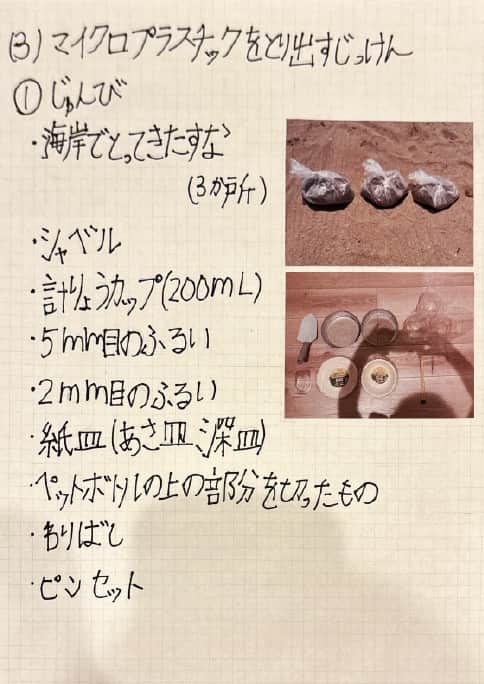 (3) マイクロプラスチックをとり出すじっけん
① じゅんび
・海岸でとってきたすな
(3か所)
・シャベル
・計りょうカップ(200mL)
・5mm目のふるい
・2mm目のふるい
・紙皿(あさ皿、深皿)
・ペットボトルの上の部分を切ったもの
・わりばし
・ピンセット